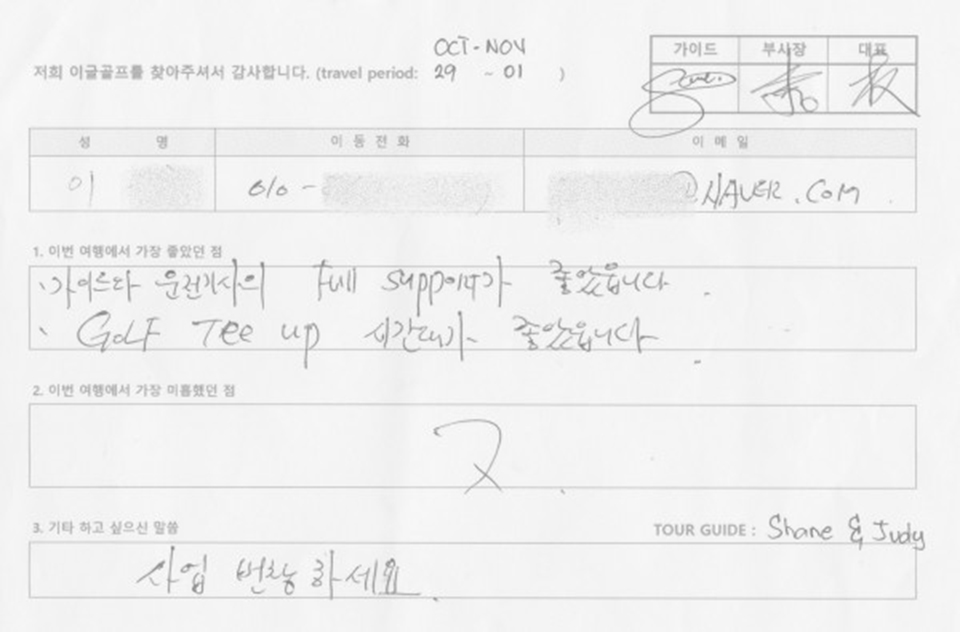 OCT - NOV
저희 이글골프를 찾아주셔서 감사합니다. (travel period: 29 ~ 01 )
가이드 부사장 대표
성 명 이 동 전 화 이 메 일
이 010 - @NAVER.COM
1. 이번 여행에서 가장 좋았던 점
가이드와 운전기사의 full support가 좋았읍니다.
GOLF Tee up 시간대가 좋았읍니다.
2. 이번 여행에서 가장 미흡했던 점
3. 기타 하고 싶으신 말씀 TOUR GUIDE : Shane & Judy
사업 번창하세요.